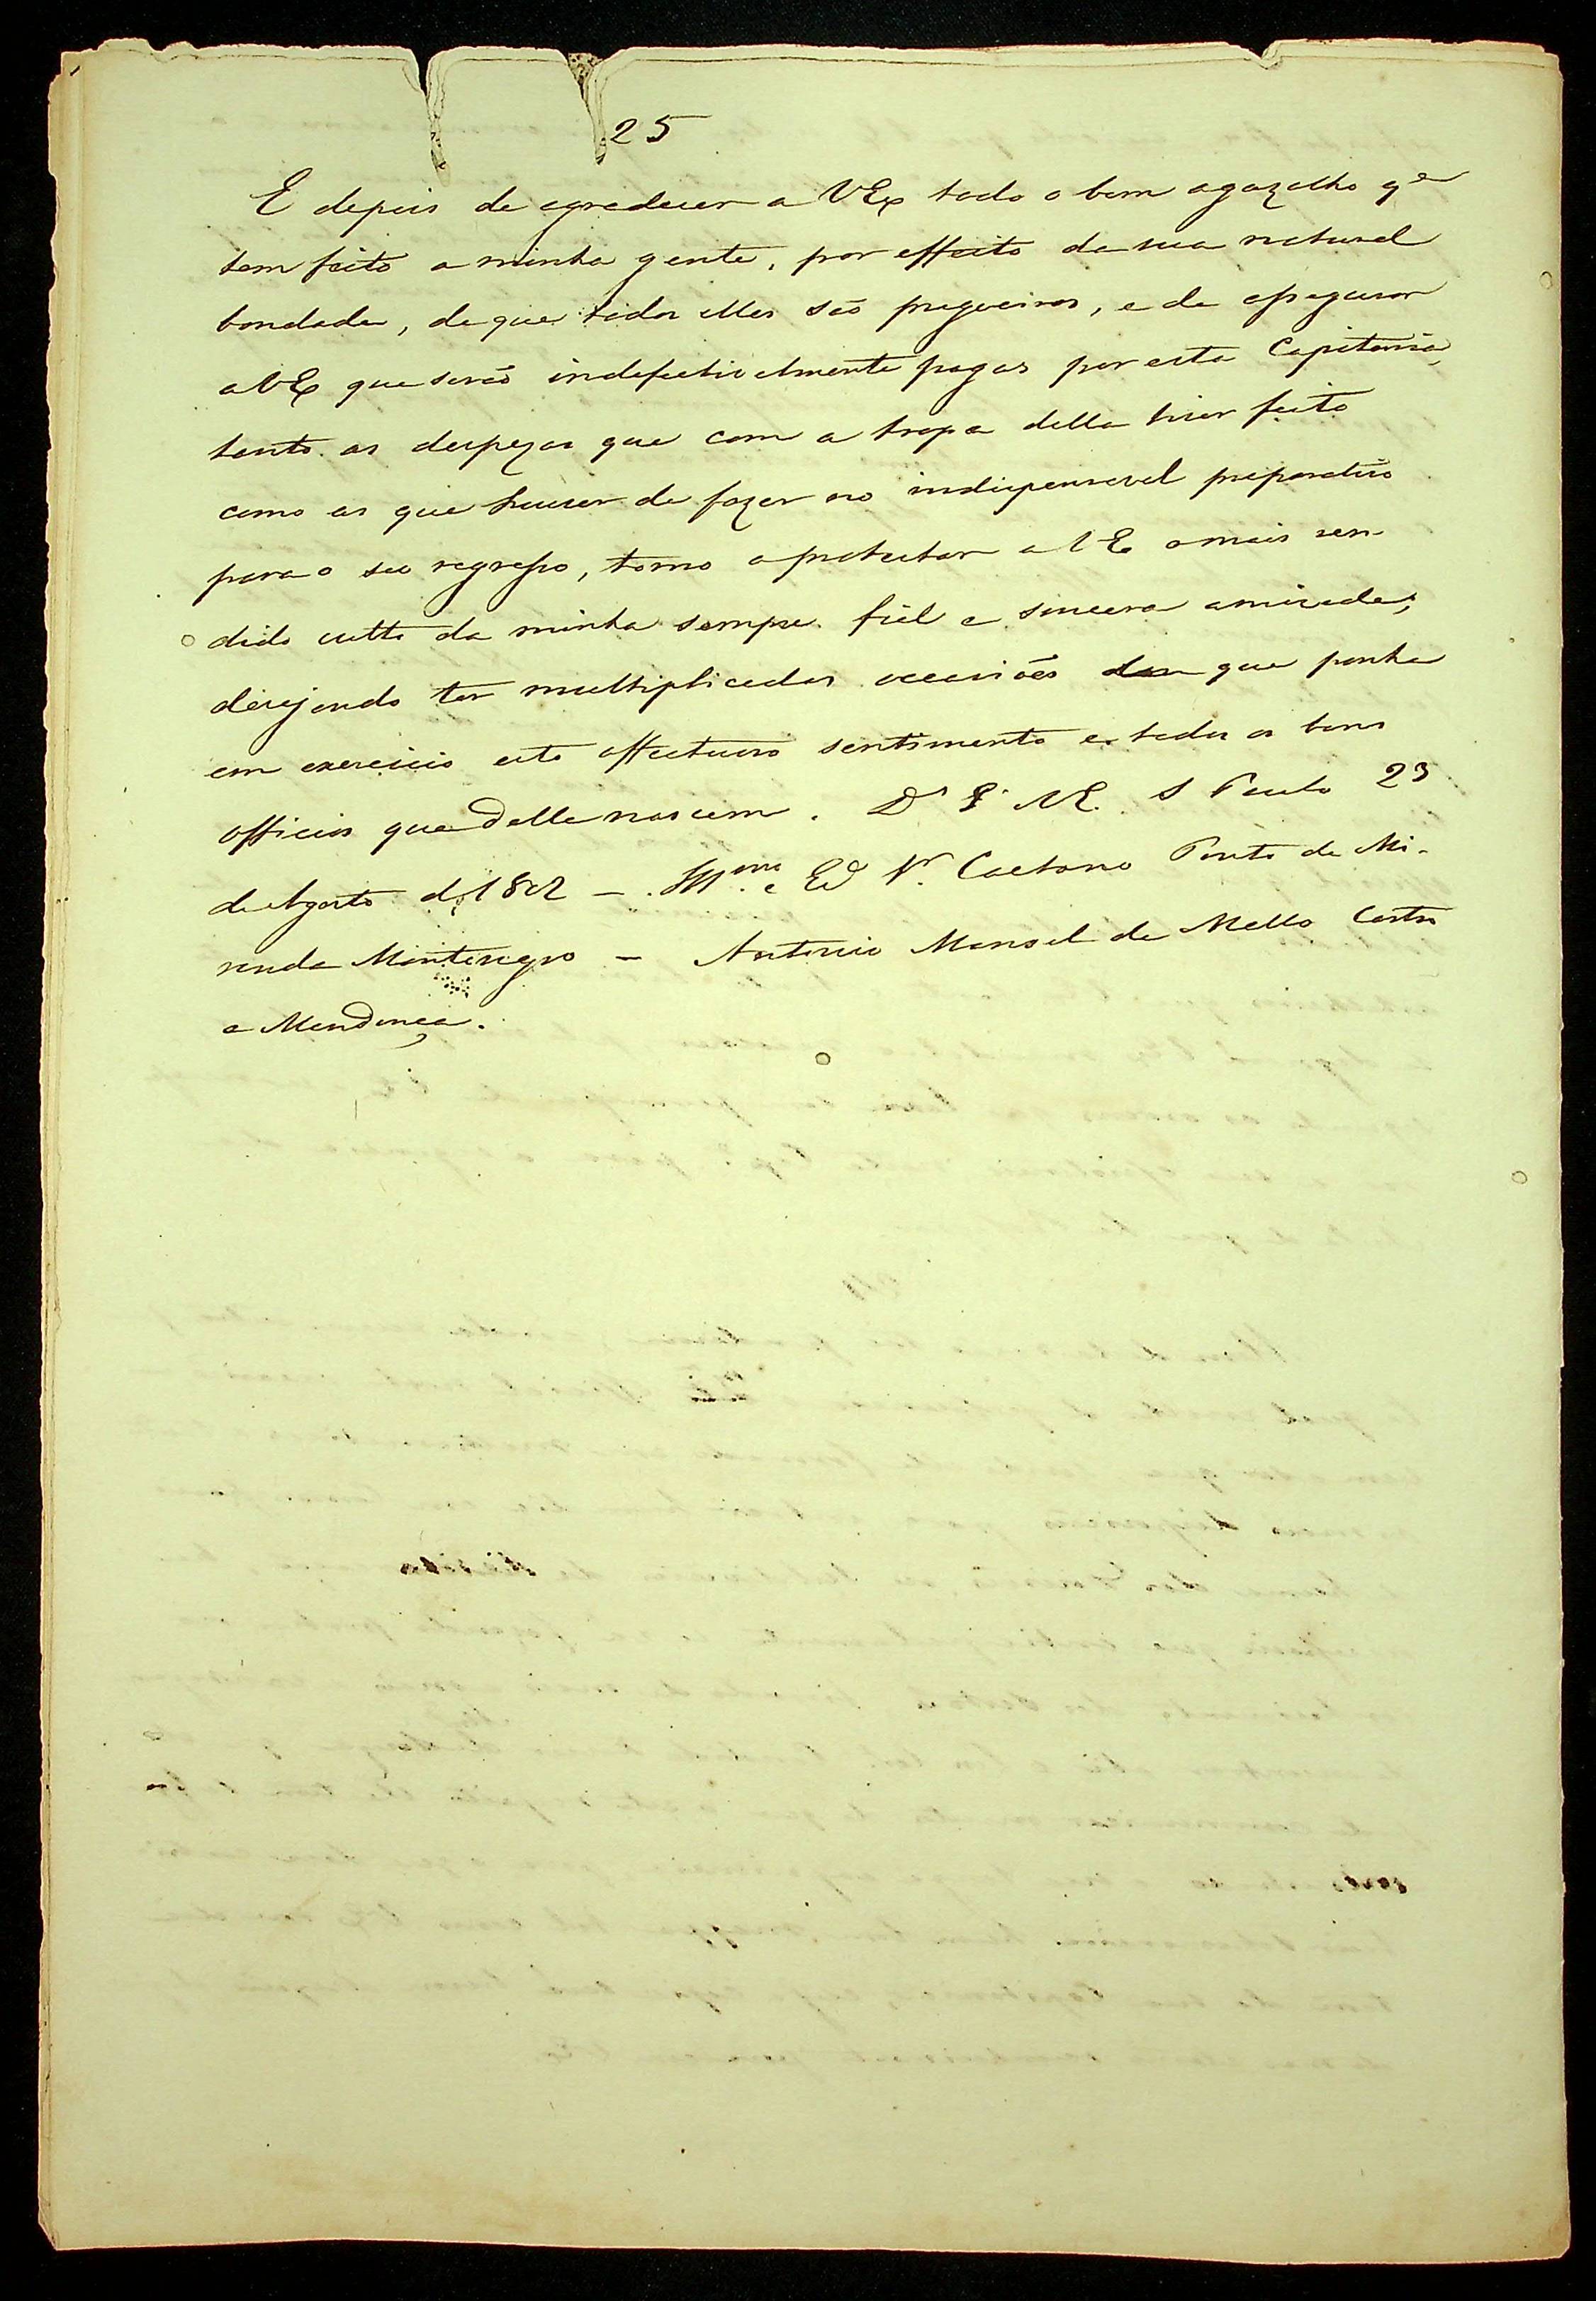 25
E depois de agradecer a VEx todo o bom agazalho q.e
tem feito a minha gente, por effeito da sua natural
bondade, de que todos elles são pregoeiros, e de assegurar
a VEx que serão indefectivelmente pagas por esta Capitania
tanto as despezas que com a tropa della tiver feito
como as que houver de fazer no indispensavel preparativo
para o seo regresso, torno a protestar a VE o mais ren-
dido culto da minha sempre fiel e sincera amizade,
desejando ter multiplicadas occasiões em que ponha
em exercicio este affectuoso sentimento e todos os bons
officios que delle nascem. D.s G.e VE. S Paulo 23
de Agosto de 1802 — Ill.mo e Ex Sr. Caetano Pinto de Mi-
randa Montenegro — Antonio Manoel de Mello Castro
e Mendonça.